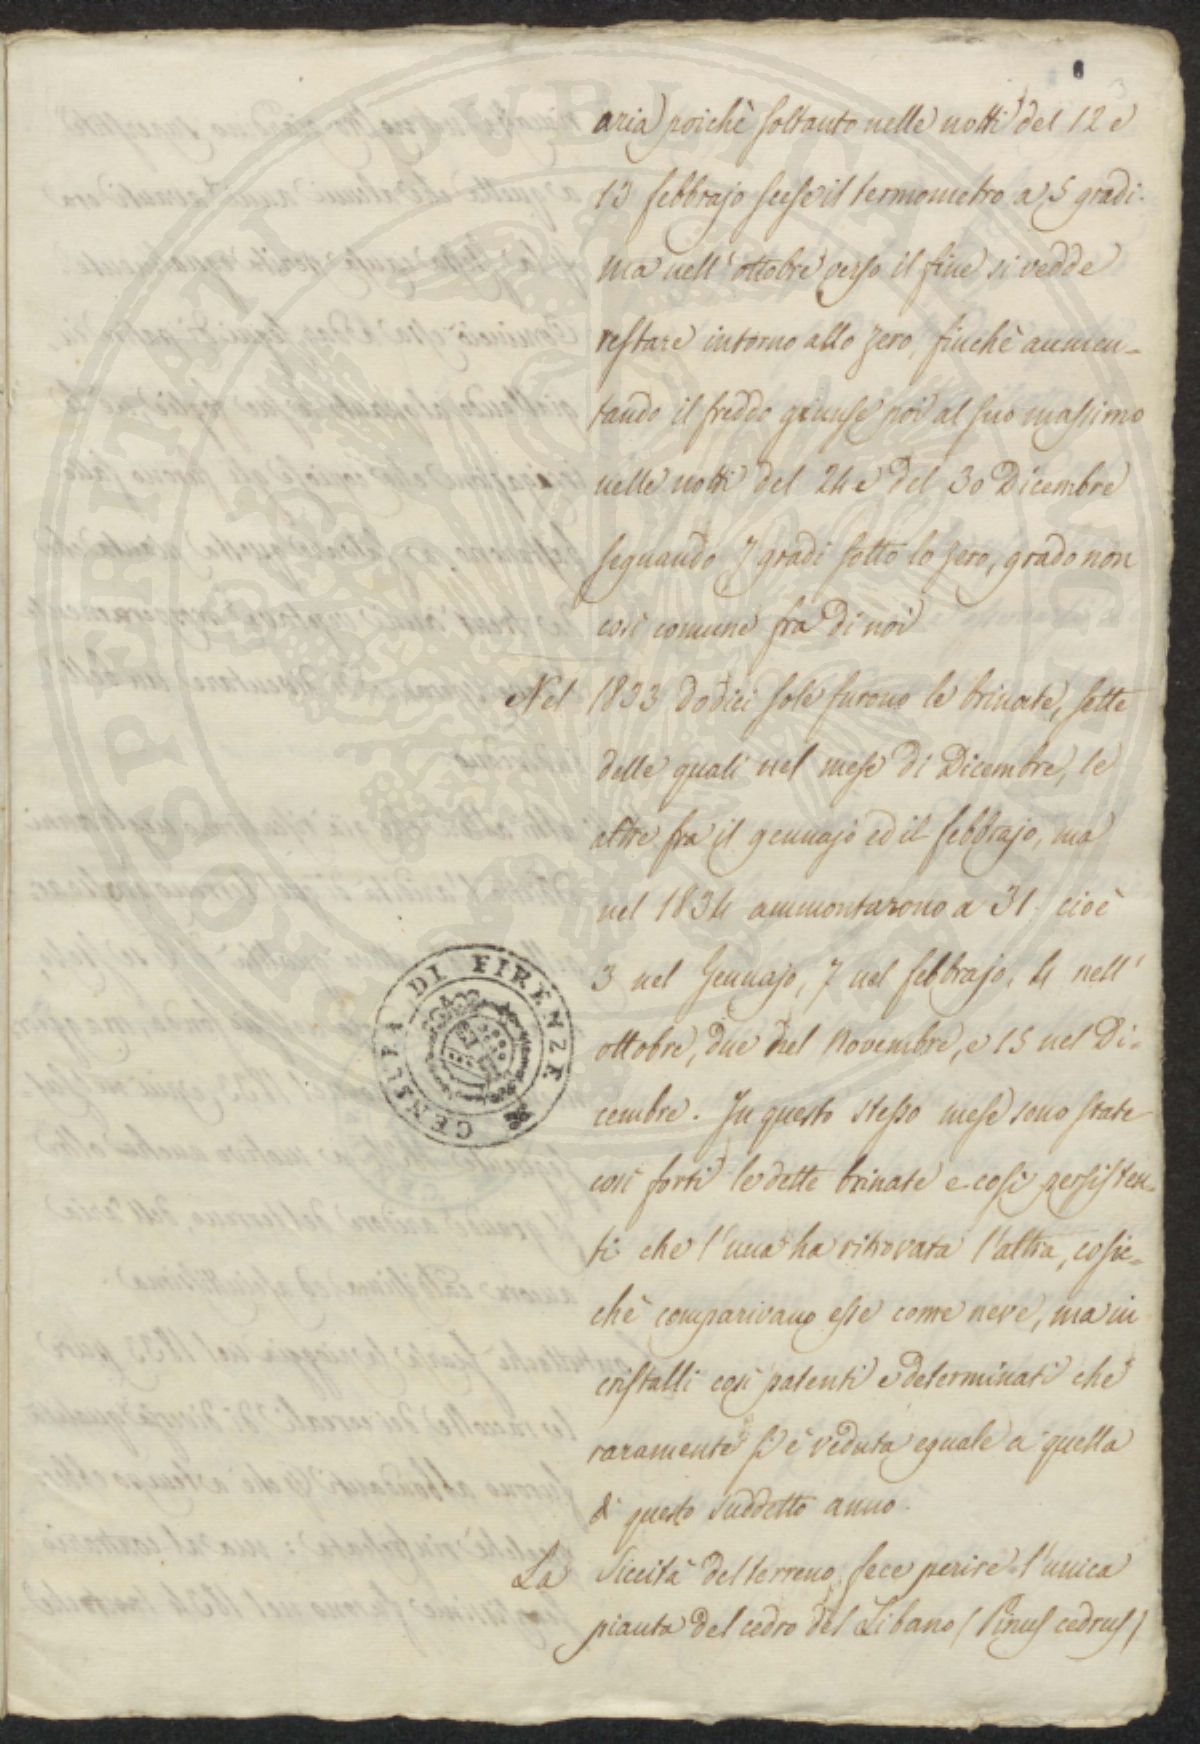 aria) poichè soltanto nelle notti del 12 e
13 febbrajo scese il termometro a 5 gradi.
ma nell'ottobre verso il fine si vedde
restare intorno allo zero, finchè aumen-
tando il freddo giunse poi al suo massimo
nelle notti del 24 e del 30 Dicembre
segnando 7 gradi sotto lo zero, grado non
così comune fra di noi
Nel 1833 dodici sole furono le brinate, sette
delle quali nel mese di Dicembre, le
altre fra il gennajo ed il febbrajo, ma
nel 1834 ammontarono a 31. cioè
3 nel Gennajo, 7 nel febbrajo, 4 nell'
ottobre, due nel Novembre, e 15 nel Di-
cembre. In questo stesso mese sono state
così forti le dette brinate e così persisten-
ti che l'una ha ritrovata l'altra, cosic-
chè comparivano esse come neve, ma in
cristalli così patenti e determinati che
raramente si è veduta eguale a quella
di questo suddetto anno.
La Siccità del terreno fece perire l'unica
pianta del cedro del Libano (Pinus cedrus)
CENSURA DI FIRENZE
PROSPERITATI PVBLICAE AVGENDAE